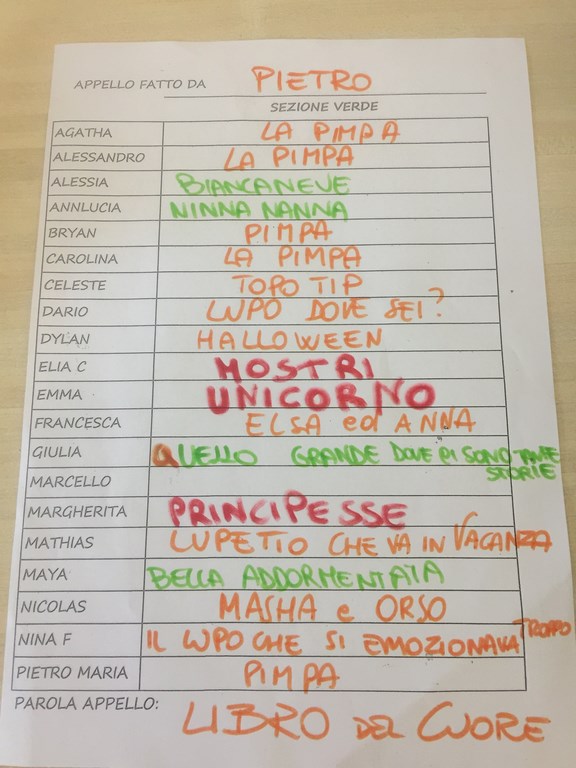 APPELLO FATTO DA PIETRO
SEZIONE VERDE
AGATHA LA PIMPA
ALESSANDRO LA PIMPA
ALESSIA BIANCANEVE
ANNLUCIA NINNA NANNA
BRYAN PIMPA
CAROLINA LA PIMPA
CELESTE TOPO TIP
DARIO LUPO DOVE SEI?
DYLAN HALLOWEEN
ELIA C MOSTRI
EMMA UNICORNO
FRANCESCA ELSA ed ANNA
GIULIA QUELLO GRANDE DOVE CI SONO TANTE
STORIE
MARCELLO
MARGHERITA PRINCIPESSE
MATHIAS LUPETTO CHE VA IN VACANZA
MAYA BELLA ADDORMENTATA
NICOLAS MASHA e ORSO
NINA F IL LUPO CHE SI EMOZIONAVA TROPPO
PIETRO MARIA PIMPA
PAROLA APPELLO: LIBRO DEL CUORE